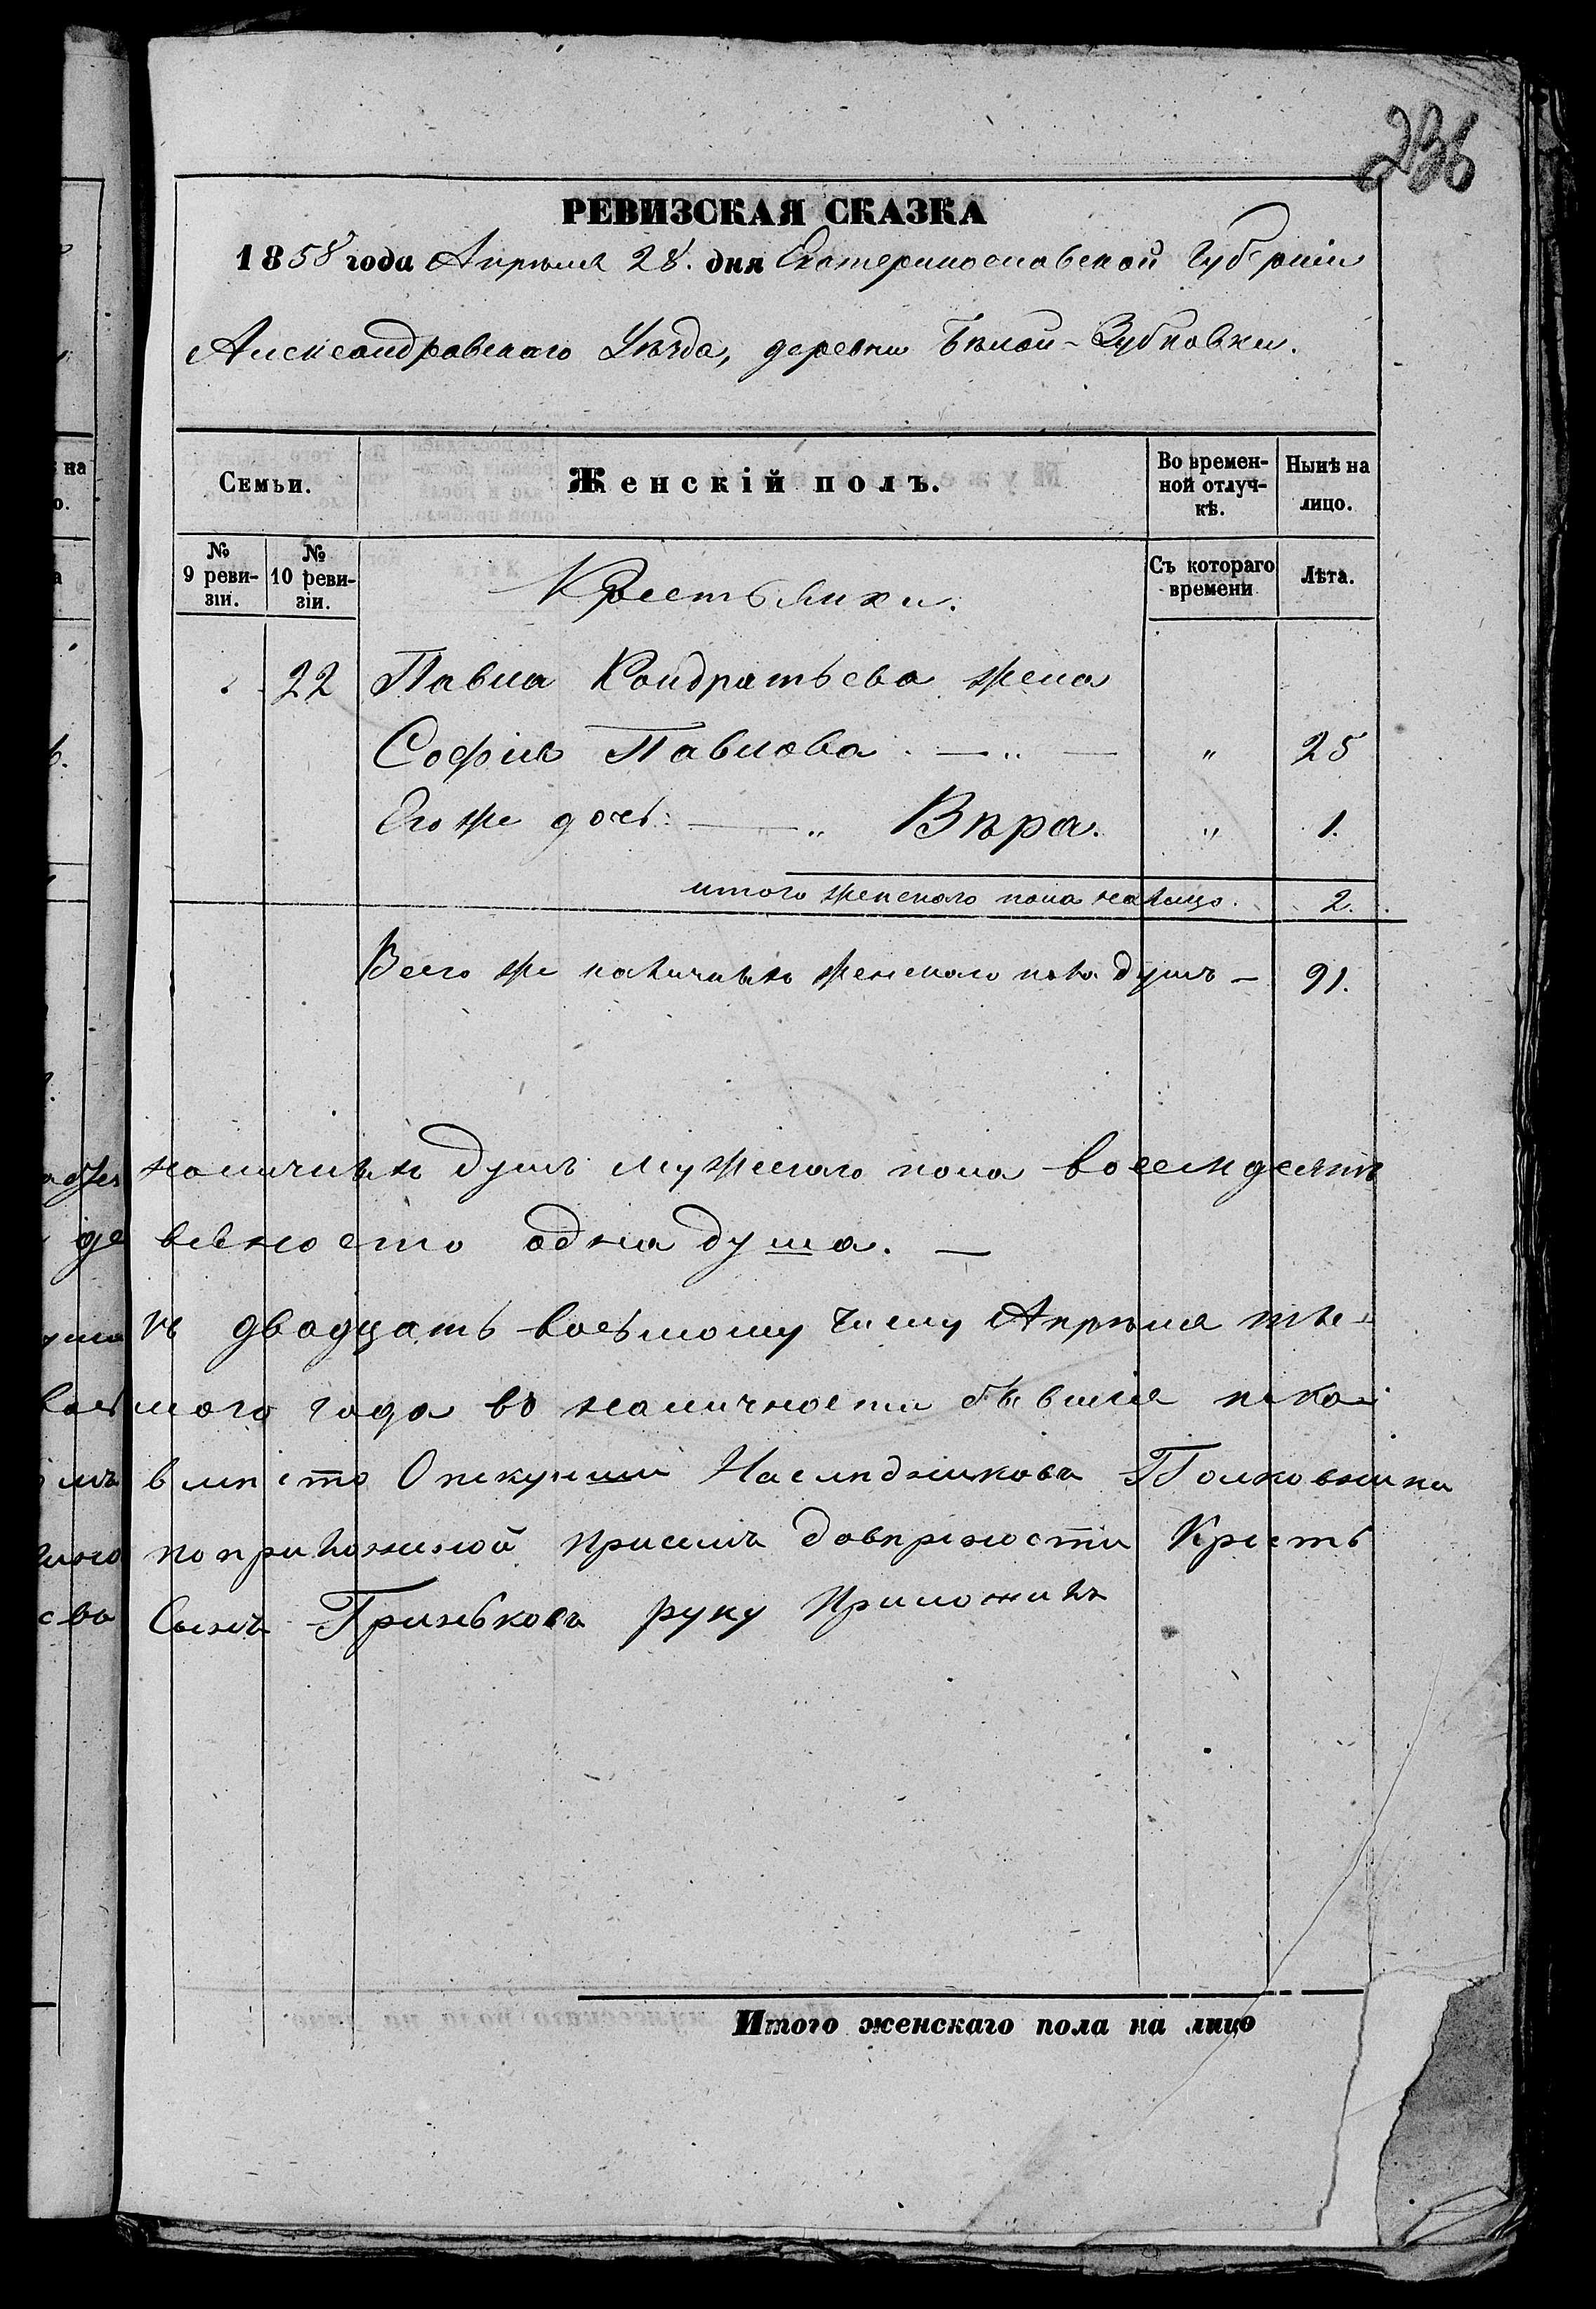 236
РЕВИЗСКАЯ СКАЗКА
1858 года Апрѣля 28. дня Екатеринославской Губерніи
Александровскаго Уѣзда, деревни Бѣлой-Зубковки.
Семьи. Женскій полъ. Во временной отлучкѣ. Нынѣ на лицо.
№ 9 ревизіи. № 10 ревизіи. Крестьянки. Съ котораго времени Лѣта.
22 Павла Кондратьева жена
Софія Павлова — „ — „ 25
Его же дочь: — „ Вѣра. „ 1.
итого женскаго пола налицо. 2.
Всего же наличныхъ женскаго пола душъ — 91.
наличныхъ душъ мужескаго пола восемдесятъ
де вяносто одна душа. —
къ двадцать восьмому числу Апрѣля
мого года въ наличности бывшія
вмѣсто Опекунши Наслѣдниковъ Полковника
по приложенной при семъ довѣрености Крестья
Сынъ Гриньковъ руку приложилъ
Итого женскаго пола на лицо